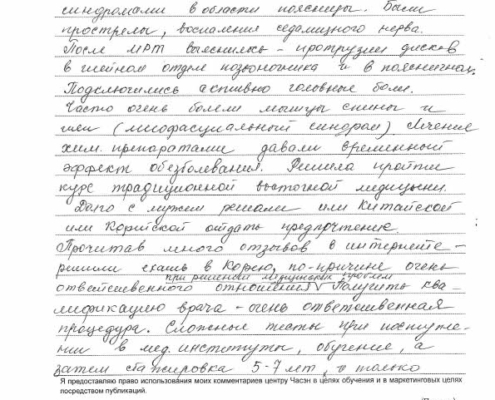 синдромами в области поясницы. Были
прострелы, воспаления седалищного нерва.
После МРТ выяснилось - протрузии дисков
в шейном отделе позвоночника и в поясничном.
Подключились активно головные боли.
Часто очень болели мышцы спины и
шеи (миофасциальный синдром) Лечение
хим. препаратами давали временный
эффект обезболевания. Решила пройти
курс традиционной восточной медицины.
Долго с мужем решали или Китайской
или Корейской отдать предпочтение.
Прочитав много отзывов в интернете -
решили ехать в Корею, по-причине очень
при решении медицинских проблем
ответственного отношения Получить ква-
лификацию врача - очень ответственная
процедура. Сложные тесты при поступле-
нии в мед. институты, обучение, а
затем стажировка 5-7 лет, и только
Я предоставляю право использования моих комментариев центру Часэн в целях обучения и в маркетинговых целях
посредством публикаций.